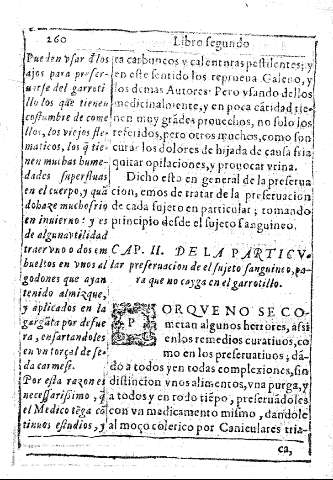 260
Libro segundo
Pueden vsar đ los
ajos para preser-
uarse del garroti
llo los que tienen
costumbre de come
llos, los viejos fle-
maticos, los q̃ tie-
nen muchas hume
dades superfluas
en el cuerpo, y quã
do haze mucho frio
en inuierno: y es
de alguna vtilidad
traer vno o dos em
bueltos en vnos al
godones que ayan
tenido almizque,
y aplicados en la
gargãta por defue
ra, ensartandoles
en vn torçal de se-
da carmesi.
Por esta razon es
necessarissimo, q̃
el Medico tẽga cõ
tinuos estudios, y
ra carbuncos y calenturas pestilentes; y
en este sentido los reprueua Galeno, y
los demas Autores. Pero vsando dellos
medicinalmente, y en poca cãtidad, tie-
nen muy grãdes prouechos, no solo los
referidos, pero otros muchos, como son
curar los dolores de hijada de causa fria
quitar opilaciones, y prouocar vrina.
Dicho esto en general de la preserua
cion, emos de tratar de la preseruacion
de cada sujeto en particular; tomando
principio desde el sujeto sanguineo.
CAP. II. DE LA PARTICV-
lar preseruacion de el sujeto sanguineo, pa-
ra que no cayga en el garrotillo.
PORQVE NO SE CO-
metan algunos herrores, assi
en los remedios curatiuos, co
mo en los preseruatiuos; dã-
do a todos y en todas complexiones, sin
distincion vnos alimentos, vna purga, y
a todos y en todo tiẽpo, preseruãdoles
con vn medicamento mismo, dandole
al moço colerico por Caniculares tria-
ca,